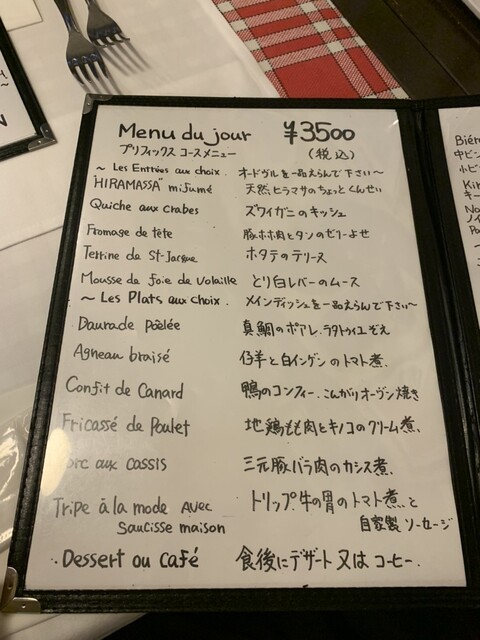 Menu du jour ¥3500
プリフィックス コースメニュー (税込)
~ Les Entrées aux choix. オードヴルを一品えらんで下さい~
"HIRAMASSA" mifumé 天然ヒラマサのちょっとくんせい
Quiche aux crabes ズワイガニのキッシュ
Fromage de tête 豚ホホ肉とタンのゼリーよせ
Terrine de St-Jacque ホタテのテリーヌ
Mousse de foie de volaille とり白レバーのムース
~ Les Plats aux choix. メインディッシュを一品えらんで下さい~
Daurade Poêlée 真鯛のポアレ.ラタトゥイユぞえ
Agneau braisé 仔羊と白インゲンのトマト煮.
Confit de Canard 鴨のコンフィー.こんがりオーヴン焼き
Fricassé de Poulet 地鶏もも肉とキノコのクリーム煮.
aux cassis 三元豚バラ肉のカシス煮.
Tripe à la mode AVEC トリップ.牛の胃のトマト煮.と
Saucisse maison 自家製 ソーセージ
. Dessert ou Café 食後にデザート 又は コーヒー.
Bière